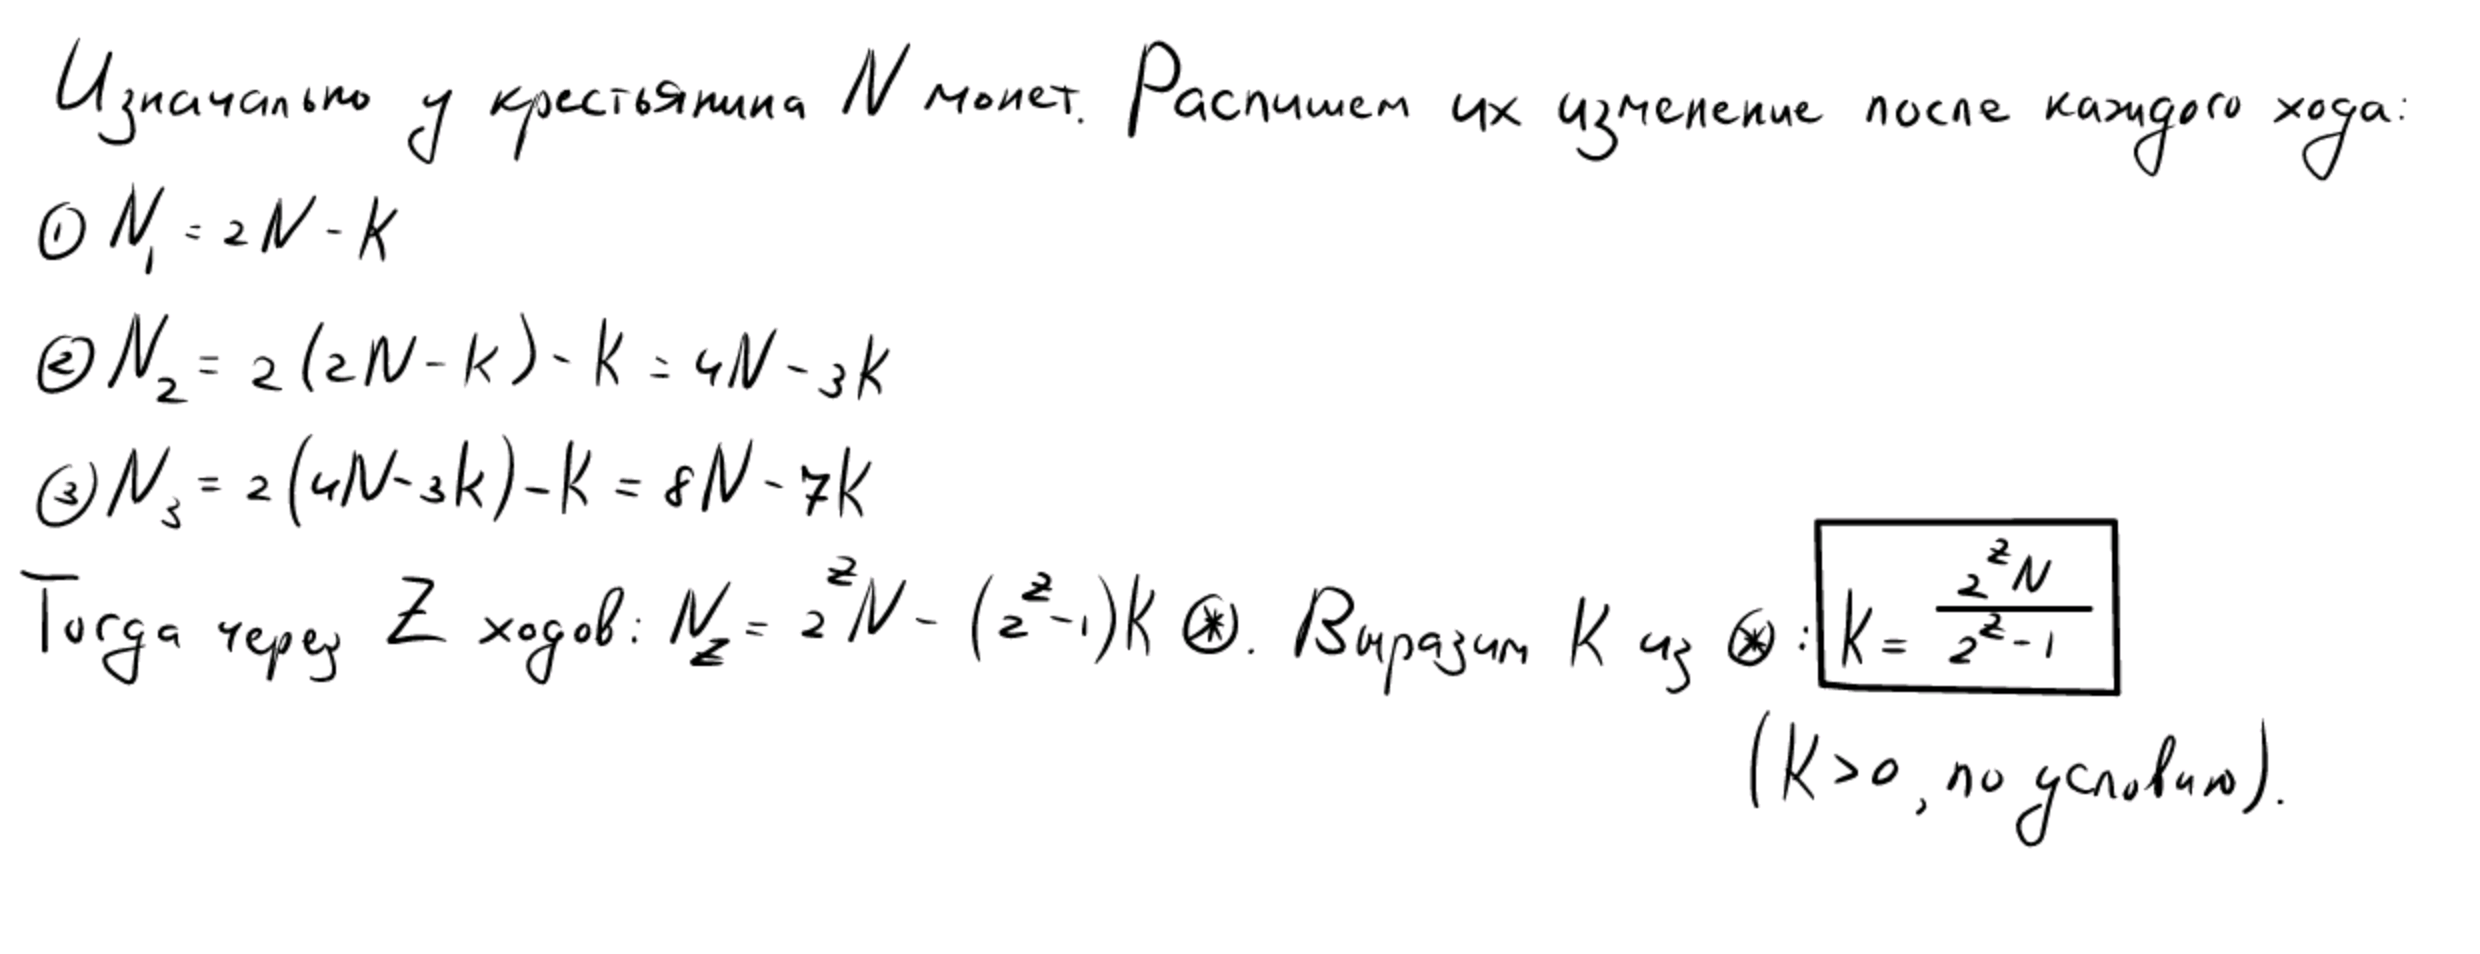 Изначально у крестьянина N монет. Распишем их изменение после каждого хода:
① N₁ = 2N - K
② N₂ = 2(2N - K) - K = 4N - 3K
③ N₃ = 2(4N - 3K) - K = 8N - 7K
Тогда через Z ходов: N_z = 2^z N - (2^z - 1)K ⊛. Выразим K из ⊛: K = 2^z N / (2^z - 1)
(K > 0, по условию).